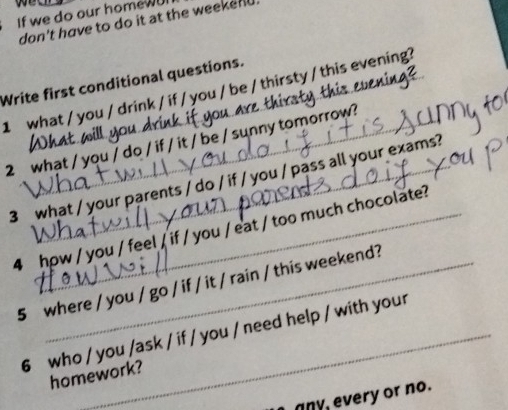 If we do our homewor
don't have to do it at the weekend.
Write first conditional questions.
1 what / you / drink / if / you / be / thirsty / this evening?
What will you drink if you are thirsty this evening?
2 what / you / do / if / it / be / sunny tomorrow?
What will you do if it is sunny to
3 what / your parents / do / if / you / pass all your exams?
What will your parents do if you p
4 how / you / feel / if / you / eat / too much chocolate?
How will
5 where / you / go / if / it / rain / this weekend?
6 who / you /ask / if / you / need help / with your
homework?
any, every or no.